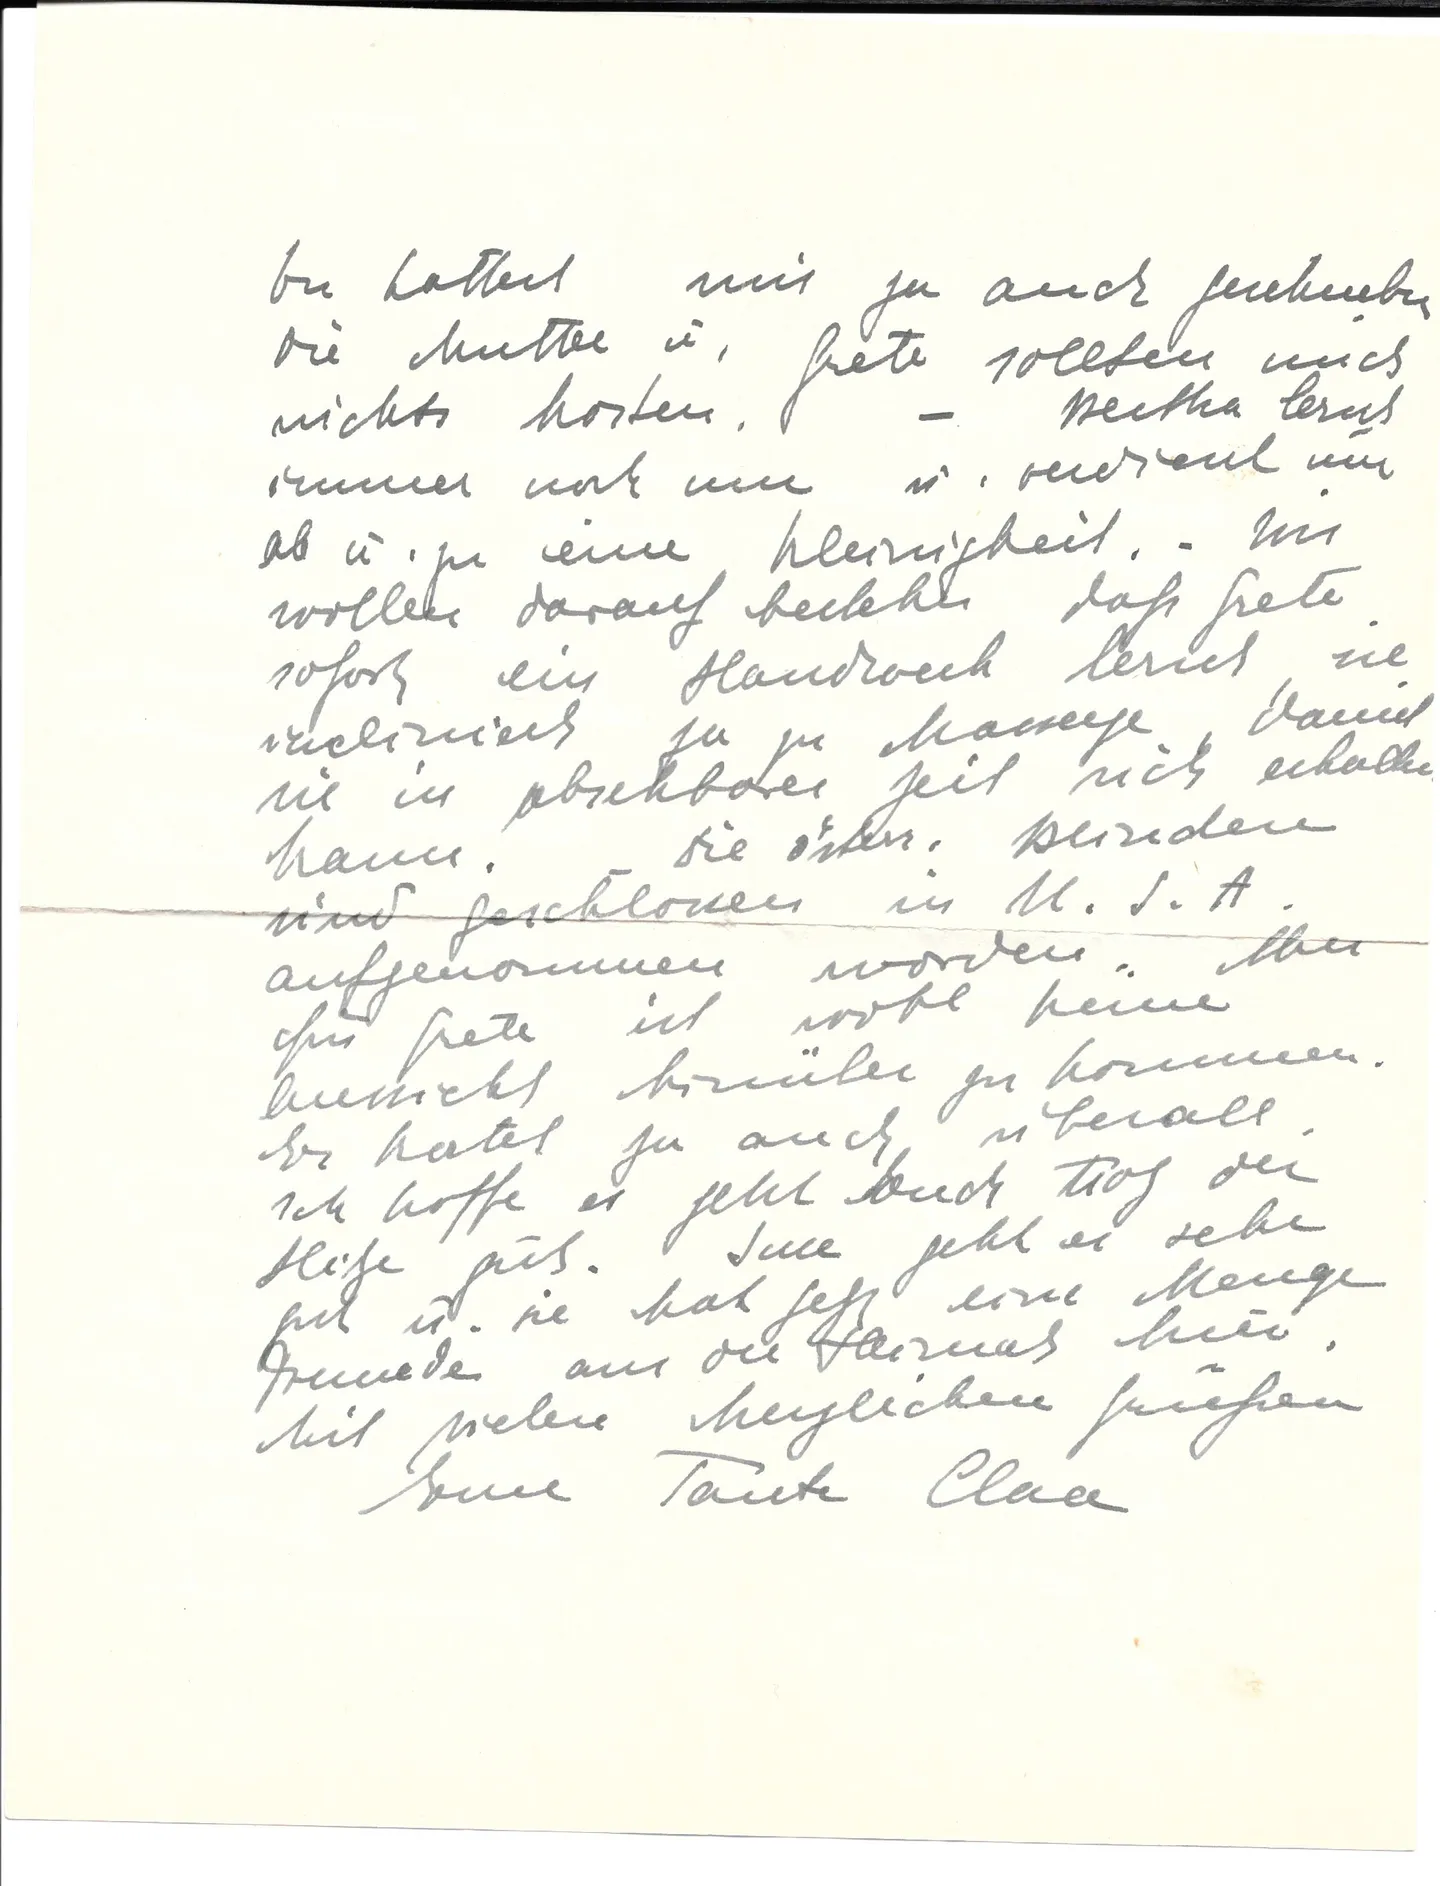 Du hattest mir ja auch geschrieben
die Mutter u. Grete sollten mich
nichts kosten. – Hertha lernt
immer noch nun u. verdient nur
ab u. zu eine Kleinigkeit. - Wir
wollen darauf bestehen daß Grete
sofort ein Handwerk lernt, sie
incliniert ja zu Massage, damit
sie in absehbarer Zeit sich erhalten
kann. – Die österr. Blinden
sind geschlossen in U.S.A.
aufgenommen worden. Aber
für Grete ist wohl keine
Aussicht hinüber zu kommen.
Es kostet ja auch überall.
Ich hoffe es geht Euch trotz der
Hitze gut. Suse geht es sehr
gut u. sie hat jetzt eine Menge
Freunde aus der Heimat hier.
Mit vielen herzlichen Grüßen
Eure Tante Clara